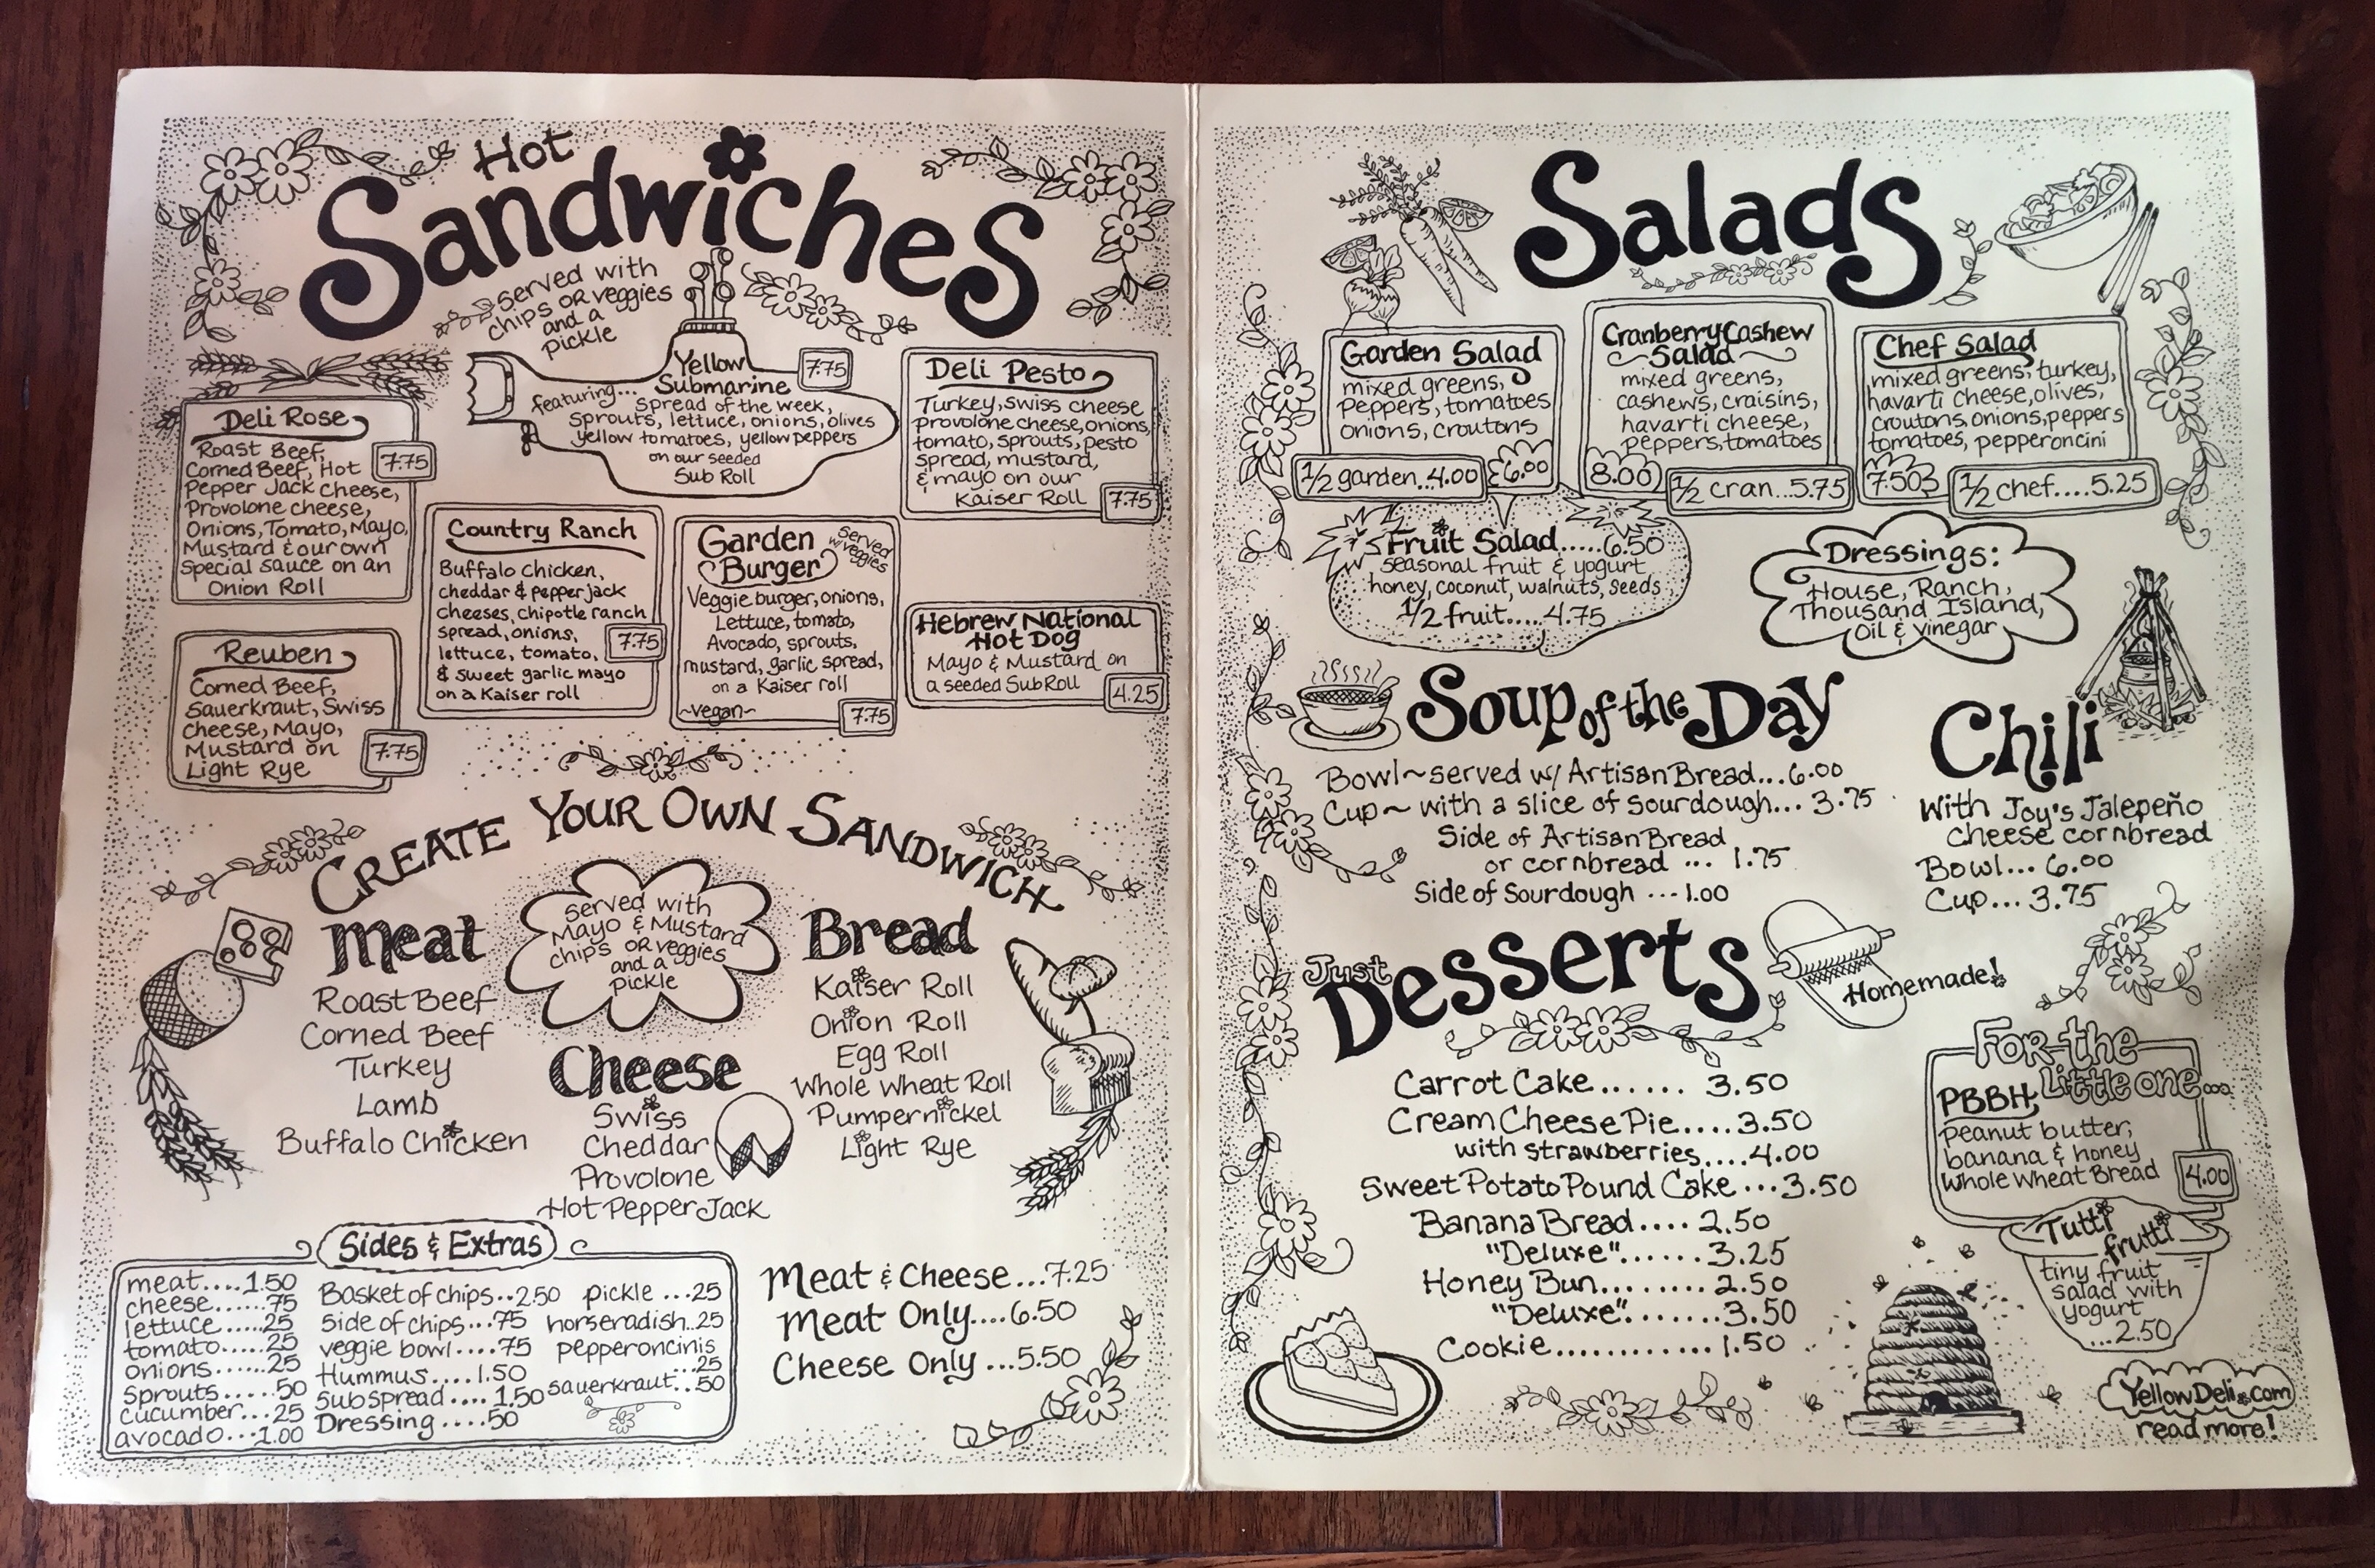 Hot
Sandwiches
served with
chips OR veggies
and a
pickle
Deli Rose
Roast Beef,
Corned Beef, Hot
Pepper Jack Cheese,
Provolone cheese,
Onions, Tomato, Mayo,
Mustard & our own
Special sauce on an
Onion Roll
7.75
Yellow
Submarine
7.75
featuring...
Spread of the week,
Sprouts, lettuce, onions, olives
yellow tomatoes, yellow peppers
on our seeded
Sub Roll
Deli Pesto
Turkey, Swiss cheese
Provolone cheese, onions,
tomato, sprouts, pesto
spread, mustard,
& mayo on our
Kaiser Roll
7.75
Reuben
Corned Beef,
Sauerkraut, Swiss
Cheese, Mayo,
Mustard on
Light Rye
7.75
Country Ranch
Buffalo Chicken,
cheddar & pepper jack
cheeses, chipotle ranch
spread, onions,
lettuce, tomato,
& sweet garlic mayo
on a Kaiser roll
7.75
Garden
Burger
Served
w/ veggies
Veggie burger, onions,
Lettuce, tomato,
Avocado, sprouts,
mustard, garlic spread,
on a Kaiser roll
~vegan~
7.75
Hebrew National
Hot Dog
Mayo & Mustard on
a seeded Sub Roll
4.25
CREATE YOUR OWN SANDWICH
Meat
Roast Beef
Corned Beef
Turkey
Lamb
Buffalo Chicken
served with
Mayo & Mustard
chips OR veggies
and a
pickle
Cheese
Swiss
Cheddar
Provolone
Hot Pepper Jack
Bread
Kaiser Roll
Onion Roll
Egg Roll
Whole Wheat Roll
Pumpernickel
Light Rye
Sides & Extras
meat....1.50
cheese......75
lettuce.....25
tomato.....25
onions......25
Sprouts.....50
cucumber...25
avocado...1.00
Basket of chips..2.50
Side of chips...75
veggie bowl....75
Hummus....1.50
Sub spread....1.50
Dressing....50
pickle...25
horseradish..25
pepperoncinis
...25
sauerkraut...50
Meat & Cheese...7.25
Meat Only....6.50
Cheese Only...5.50
Salads
Garden Salad
mixed greens,
Peppers, tomatoes
onions, croutons
1/2 garden...4.00
6.00
Cranberry Cashew
Salad
mixed greens,
cashews, craisins,
havarti cheese,
peppers, tomatoes
8.00
1/2 cran...5.75
Chef Salad
mixed greens, turkey,
havarti cheese, olives,
croutons, onions, peppers
tomatoes, pepperoncini
7.50
1/2 chef....5.25
Fruit Salad.....6.50
seasonal fruit & yogurt
honey, coconut, walnuts, seeds
1/2 fruit.....4.75
Dressings:
House, Ranch,
Thousand Island,
Oil & vinegar
Soup of the Day
Bowl~served w/ Artisan Bread...6.00
Cup~ with a slice of sourdough... 3.75
Side of Artisan Bread
or cornbread ... 1.75
Side of Sourdough ...1.00
Chili
With Joy's Jalepeño
cheese cornbread
Bowl... 6.00
Cup... 3.75
Just
Desserts
Homemade!
Carrot Cake...... 3.50
Cream Cheese Pie....3.50
with strawberries....4.00
Sweet Potato Pound Cake...3.50
Banana Bread.... 2.50
"Deluxe".......3.25
Honey Bun.........2.50
"Deluxe"........3.50
Cookie............1.50
For the
Little one...
PBBH,
peanut butter,
banana & honey
Whole Wheat Bread
4.00
Tutti
frutti
tiny fruit
salad with
yogurt
...2.50
YellowDeli.com
read more!